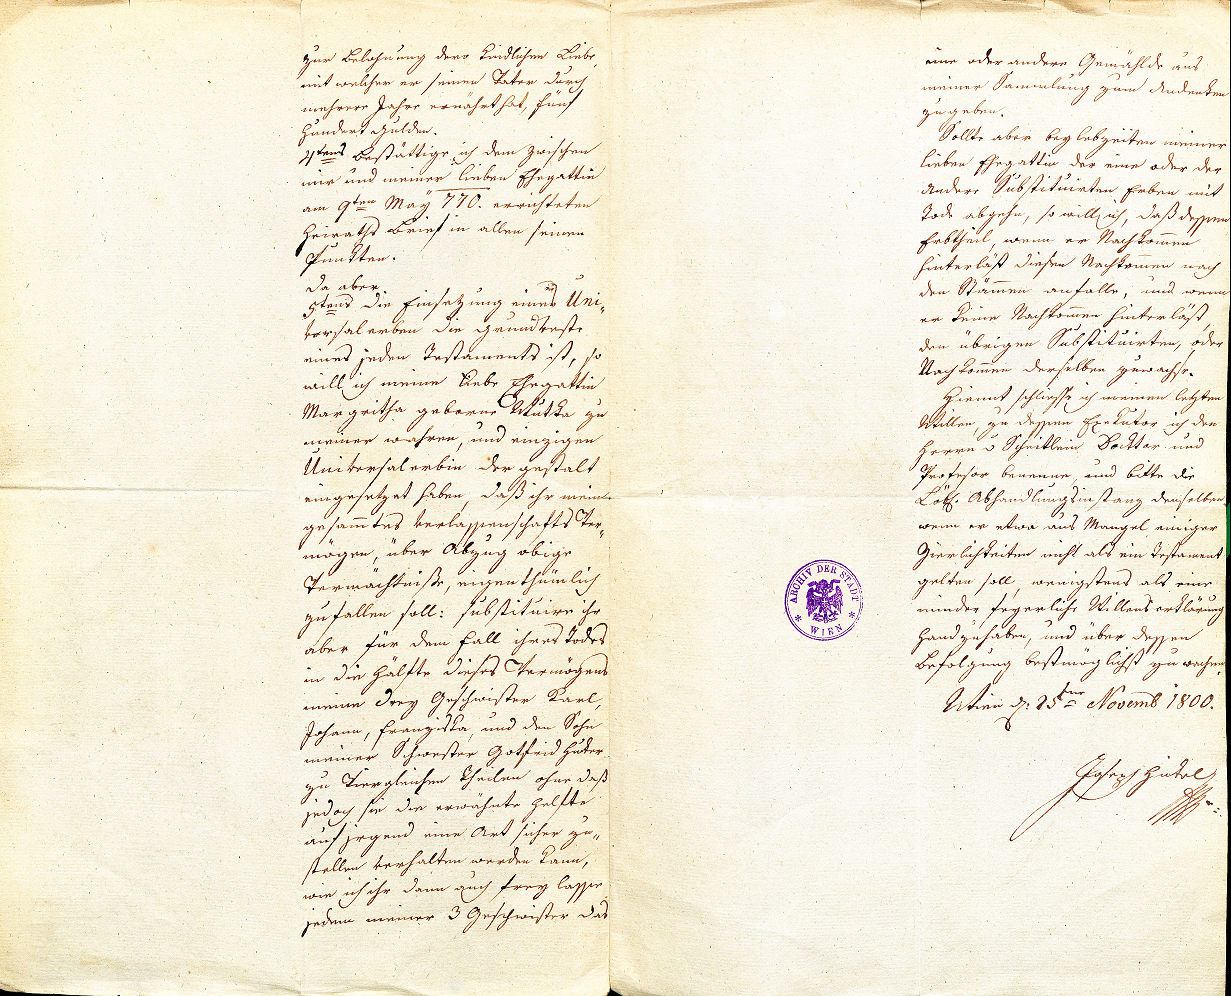 zur Belohnung derr Kindlichen Liebe,
mit welcher er seinen Vater durch
mehrere Jahre ernährt hat, fünf
hundert Gulden.
4tens Bestättige ich dem zwischen
mir und meiner lieben Ehegattin
am 9ten May 770. errichteten
Heiraths Brief in allen seinen
Punkten.
Da aber
5tens die Einsetzung eines Uni-
versalerben die Grundveste
eines jeden Testaments ist, so
will ich meine liebe Ehegattin
Margritha geborne Wutka zu
meiner wahren, und einzigen
Universalerbin der gestalt
eingesetzet haben, daß ihr mein
gesammtes Verlassenschafts Ver-
mögen, über Abzug obiger
Vermächtniße, eigenthümlich
zufallen soll: substituire ihr
aber für dem Fall ihres Todes
in die Hälfte dieses Vermögens
meine drey Geschwister Karl,
Johann, Franziska, und den Sohn
meiner Schwester Gotfrid Huber
zu Viergleichen Theilen ohne daß
jedoch sie die erwähnte Helfte
auf jrgend eine Art sicher zu-
stellen verhalten werden kann,
wie ich ihr dann auch frey lasse,
jedem meiner 3 Geschwister das
eine oder andere Gemählde aus
meiner Sammlung zum Andenken
zu geben.
Sollte aber bey lebzeiten meiner
lieben Ehegattin der eine oder der
andere Substituirten Erben mit
Tode abgehn, so will ich, daß dessen
Erbtheil, wenn er Nachkommen
hinterläßt diesen Nachkommen nach
den Stämmen anfalle, und wenn
er keine Nachkommen hinterläßt,
den übrigen Substituirten, oder
Nachkommen derselben zuwachse.
Hiemit schliesse ich meinen letzten
Willen, zu dessen Exekutor ich den
Herrn v Scheitlein Docktor und
Profesor benenne, und bitte die
Löbl. Abhandlungsinstanz denselben,
wenn er etwa aus Mangel einiger
Zierlichkeiten nicht als ein Testament
gelten soll, wenigstens als eine
minder feyerliche Willenserklärung
handzuhaben, und über dessen
Befolgung bestmöglichst zu wachen.
Wien d. 25ten Novemb 1800.
Joseph Hickel
ARCHIV DER STADT
* WIEN *